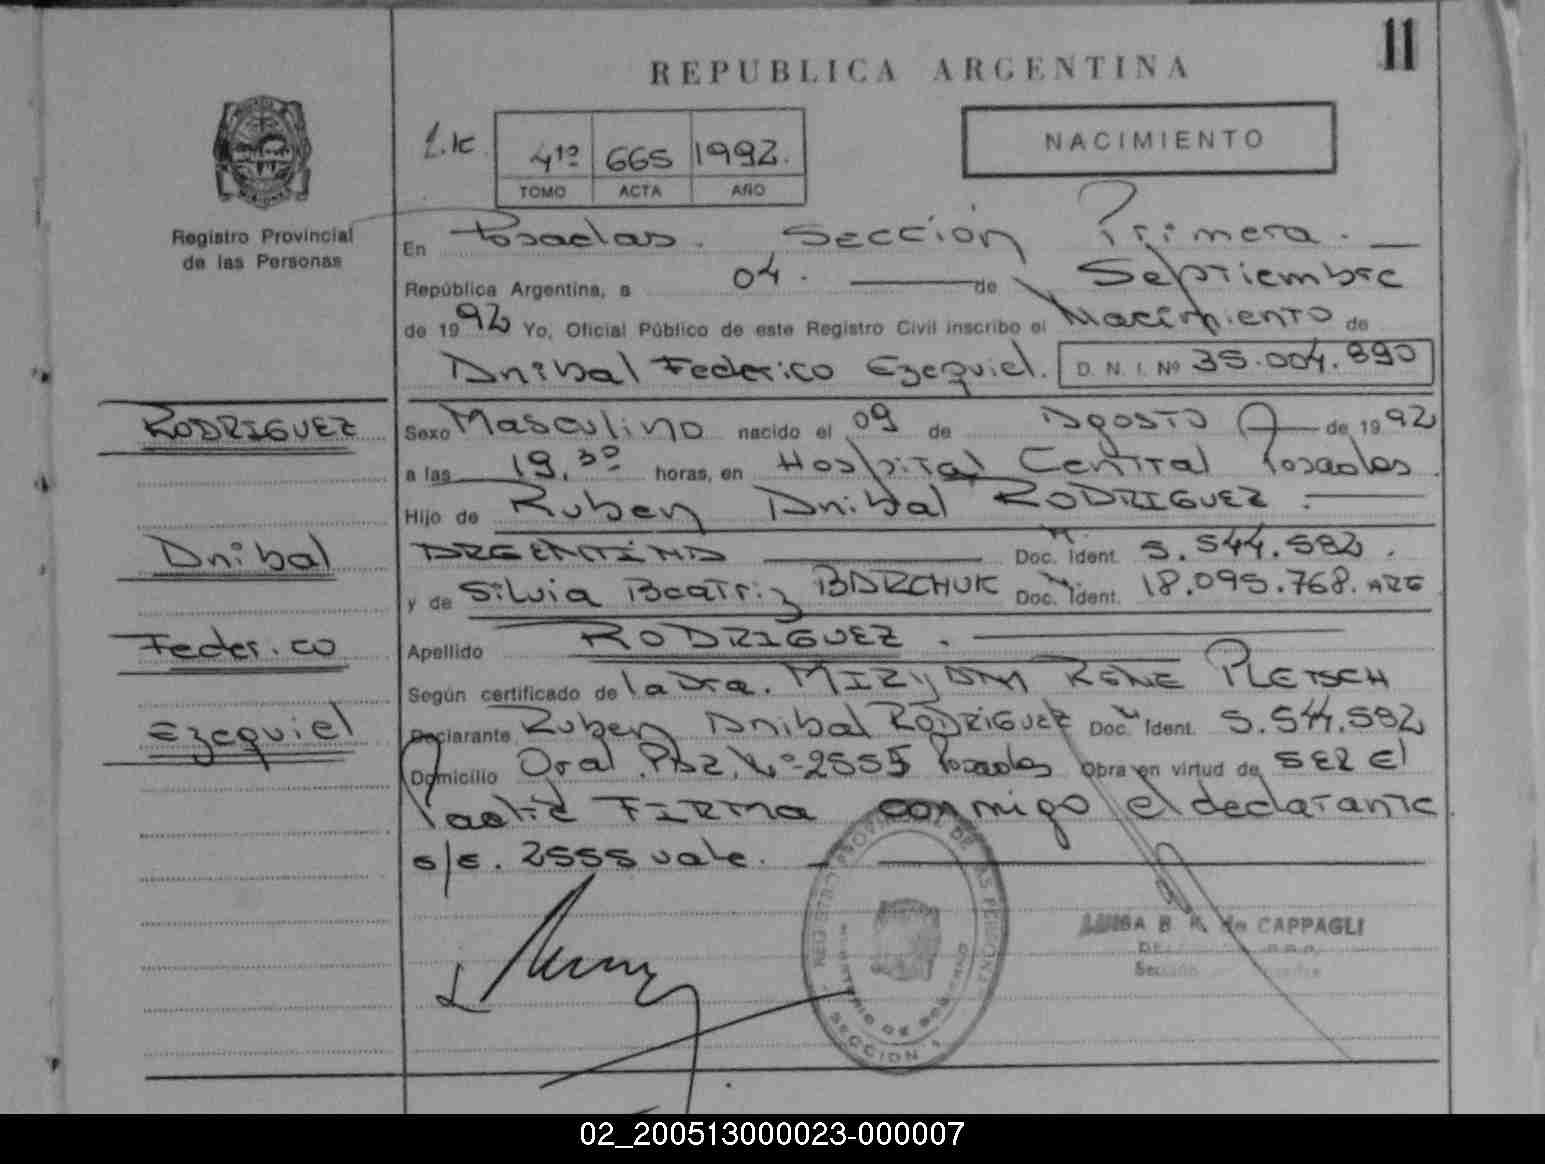 11
REPUBLICA ARGENTINA
NACIMIENTO
4tº 665 1992.
TOMO ACTA AÑO
Registro Provincial
de las Personas
En Posadas. Sección Primera.
República Argentina, a 04. de Septiembre
de 1992 Yo, Oficial Público de este Registro Civil inscribo el Nacimiento de
Anibal Federico Ezequiel. D. N. I. Nº 35.004.890
RODRIGUEZ
Sexo Masculino nacido el 09 de Agosto de 1992
a las 19.30 horas, en Hospital Central Posadas
Hijo de Ruben Anibal RODRIGUEZ.
Anibal
ARGENTINA Doc. Ident. M. 5.544.582.
y de Silvia Beatriz BARCHUK Doc. Ident. 18.095.768. ARG
Federico
Apellido RODRIGUEZ.
Según certificado de la Dra. MIRYAM RENE PLETSCH
Ezequiel
Declarante Ruben Anibal RODRIGUEZ Doc. Ident. 5.544.582
Domicilio Nº 2555 Posadas Obra en virtud de SER El
Padre FIRMA conmigo el declarante
s/e. 2555 vale.
REGISTRO PROVINCIAL DE LAS PERSONAS
SECCION 1
LUISA B. R. de CAPPAGLI
02_200513000023-000007